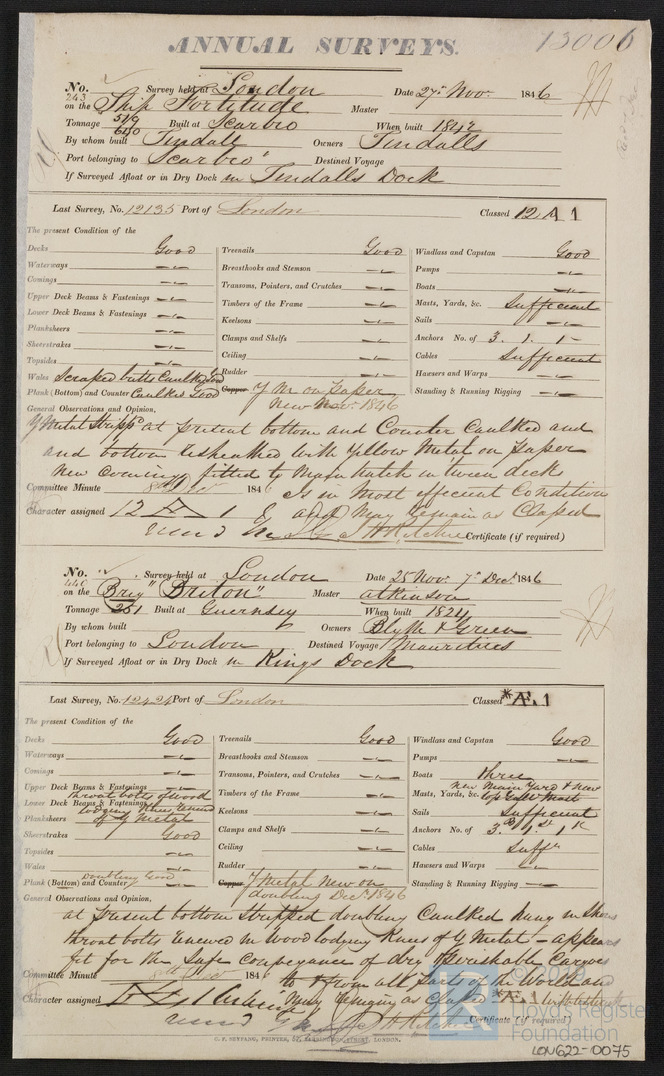 ANNUAL SURVEYS. 13006
No. 243 Survey held at London Date 27th Nov. 1846
on the Ship Fortitude Master
Tonnage 519 Built at Scarbro When built 1842
By whom built Tindall Owners Tindalls
Port belonging to Scarbro' Destined Voyage
If Surveyed Afloat or in Dry Dock in Tindalls Dock
Last Survey, No. 12135 Port of London Classed 12 A 1
The present Condition of the
Decks Good Treenails Good Windlass and Capstan Good
Waterways Breasthooks and Stemson Pumps
Comings Transoms, Pointers, and Crutches Boats
Upper Deck Beams & Fastenings Timbers of the Frame Masts, Yards, &c. Sufficient
Lower Deck Beams & Fastenings Keelsons Sails
Planksheers Clamps and Shelfs Anchors No. of 3. 1. 1
Sheerstrakes Ceiling Cables Sufficient
Topsides Rudder Hawsers and Warps
Wales Scraped butts Caulked Good Copper Y M on Paper Standing & Running Rigging
Plank (Bottom) and Counter Caulked Good New Nov. 1846
General Observations and Opinion,
Y Metal Stripp'd at present bottom and Counter Caulked and
and bottom resheathed with Yellow Metal on Paper
New Coming fitted to Main hatch in tween decks
Committee Minute 8th Decr 184 Is in most efficient Condition
Character assigned 12 A 1 and May remain as Classed
Certificate (if required)
No. 440 Survey held at London Date 25 Nov. 7th Decr 1846
on the Brig "Briton" Master Atkinson
Tonnage 251 Built at Guernsey When built 1824
By whom built Owners Blyth & Green
Port belonging to London Destined Voyage Mauritius
If Surveyed Afloat or in Dry Dock in Kings Dock
Last Survey, No. 12424 Port of London Classed *Æ 1
The present Condition of the
Decks Good Treenails Good Windlass and Capstan Good
Waterways Breasthooks and Stemson Pumps
Comings Transoms, Pointers, and Crutches Boats three
Upper Deck Beams & Fastenings Timbers of the Frame Masts, Yards, &c. New Main Yard & New
throat bolts of wood top Gallt Mast
Lower Deck Beams & Fastenings lodging Knees renewed Keelsons Sails Sufficient
Planksheers of Y Metal Clamps and Shelfs Anchors No. of 3. 1. 1
Sheerstrakes Good Ceiling Cables Suff.
Topsides Rudder Hawsers and Warps
Wales Copper Y Metal New on Standing & Running Rigging
Plank (Bottom) and Counter Doubling Good doubling Decr 1846
General Observations and Opinion,
at present bottom stripped doubling Caulked hung in Shoes
throat bolts renewed in wood lodging Knees of Y Metal – appears
fit for the Safe Conveyance of dry & Perishable Cargoes
Committee Minute 8th Decr 184 to & from all Parts of the World and
Character assigned May Remain as Classed *Æ 1
Certificate (if required)
C. F. SEYFANG, PRINTER, 57, FARRINGDON STREET, LONDON.
© 2019
Lloyd's Register
Foundation
LON622-0075